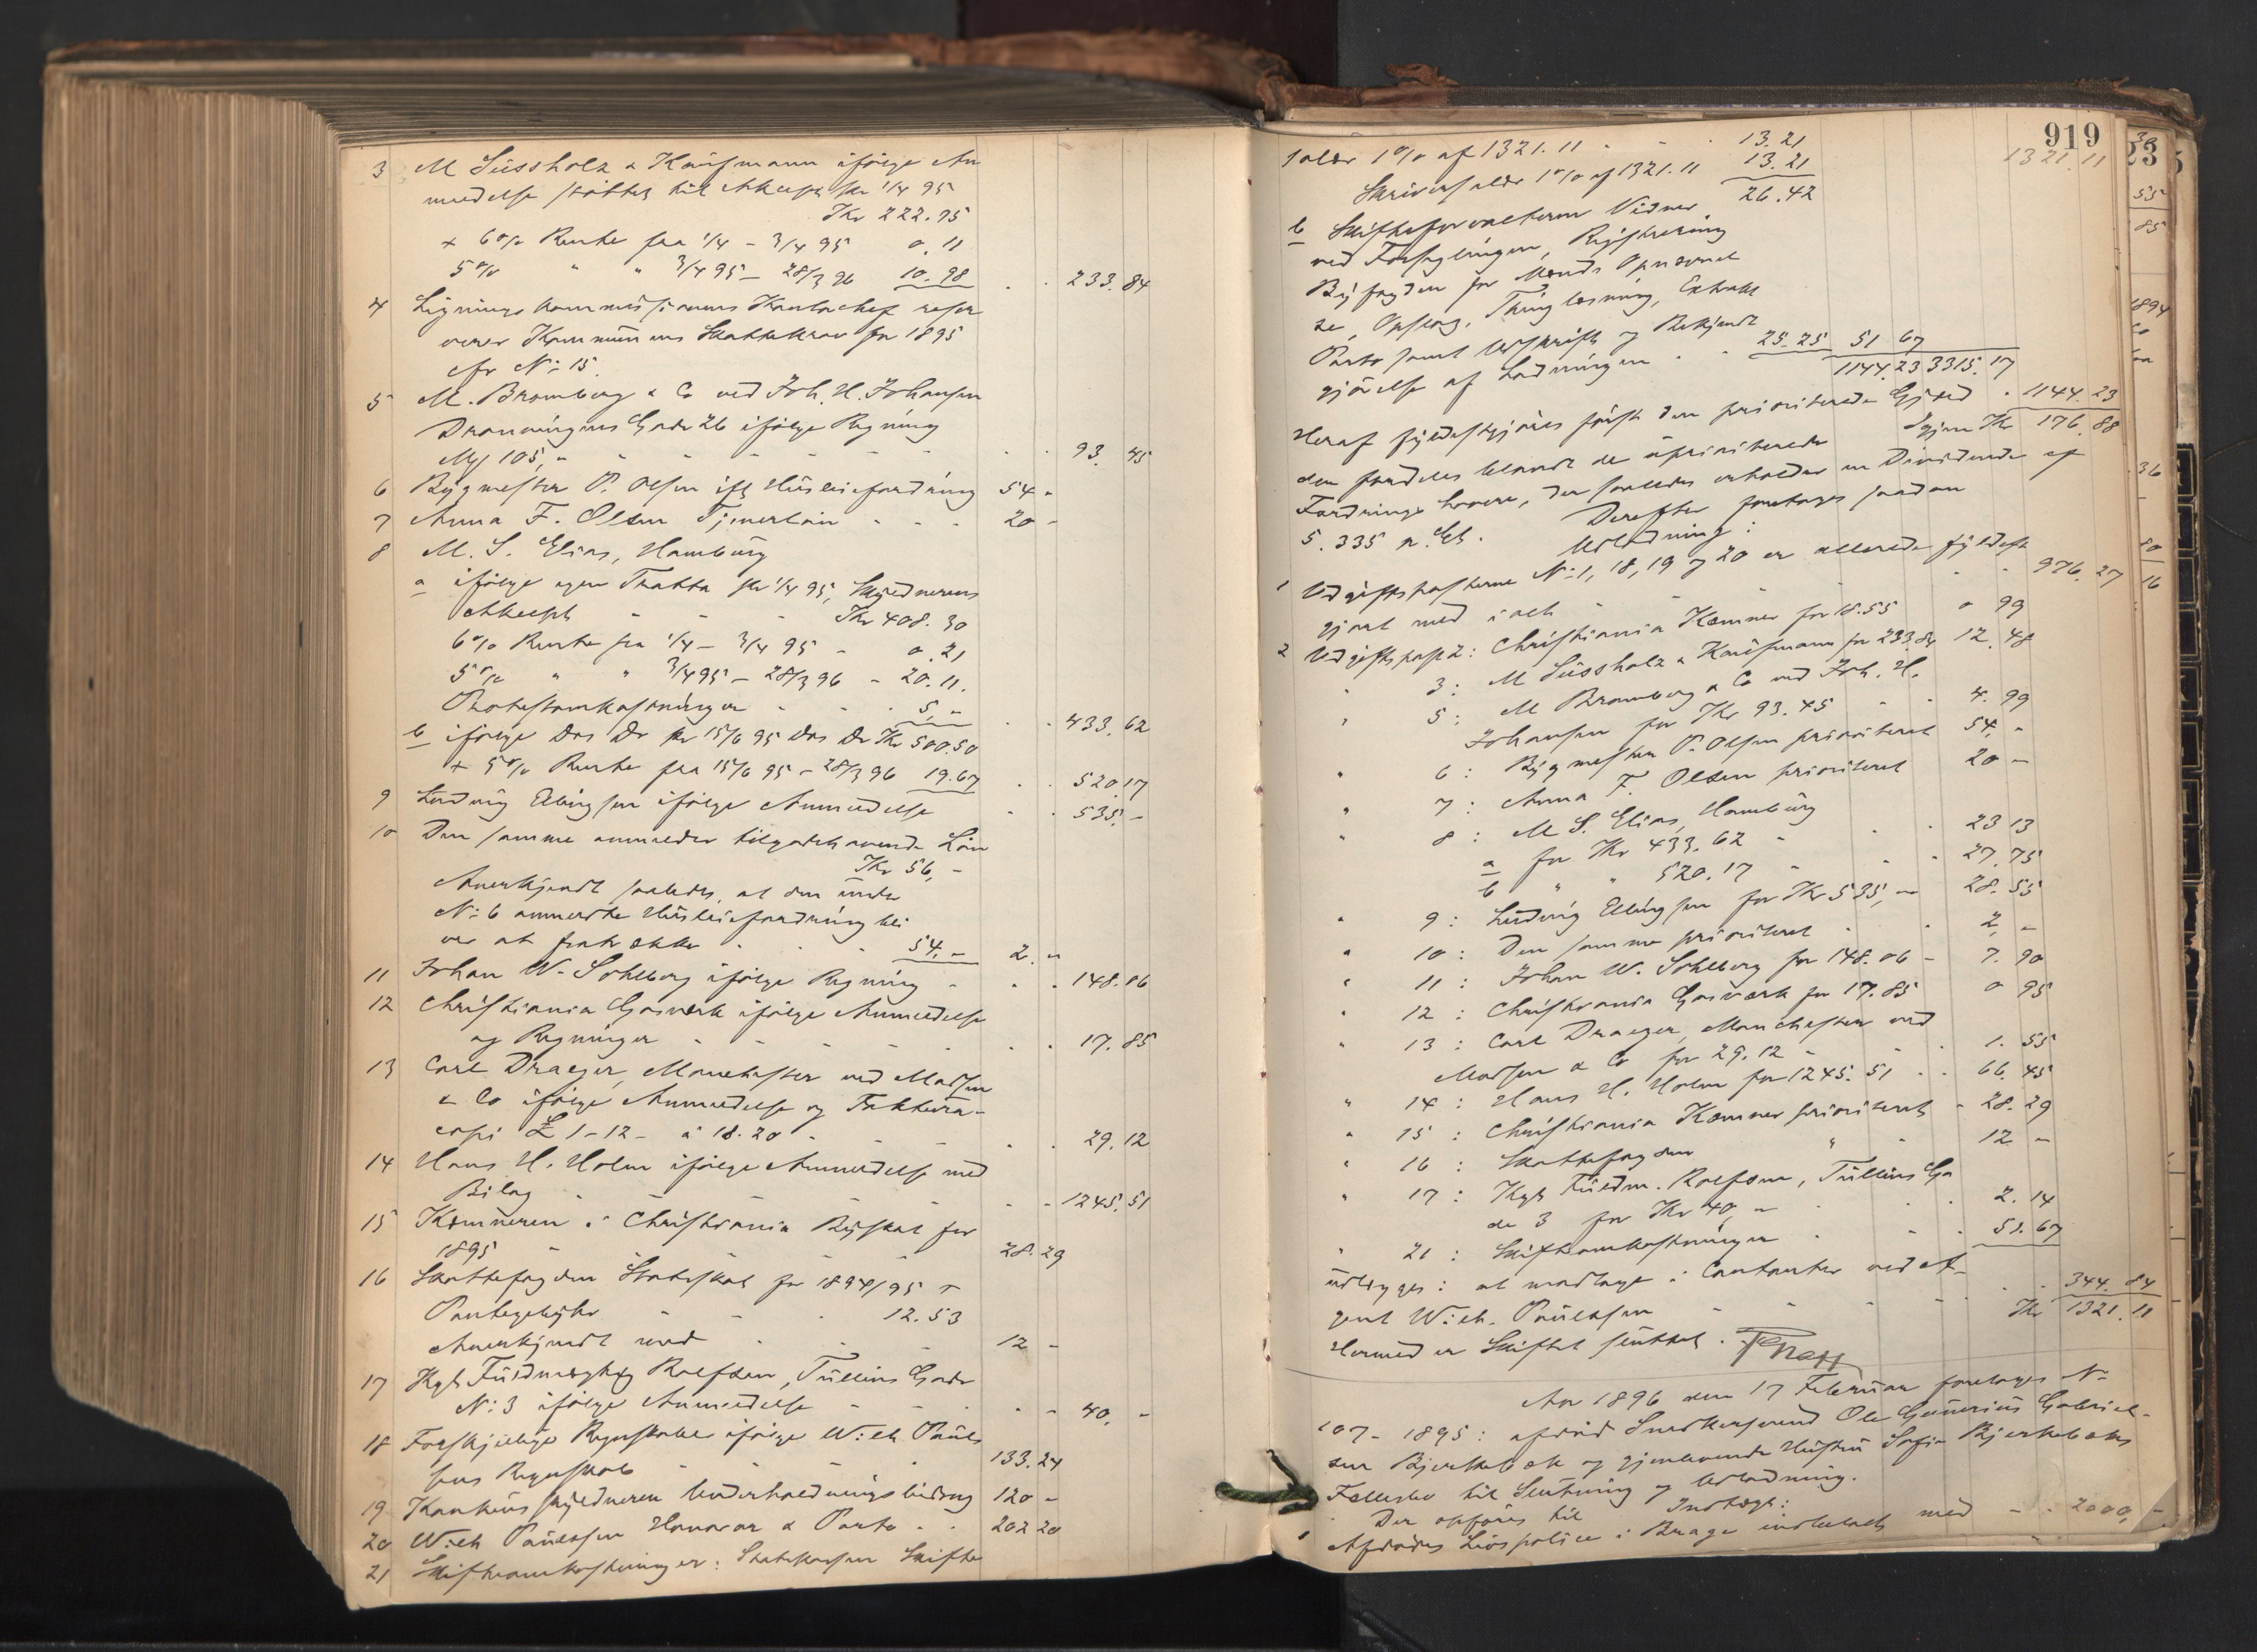 3 M Süssholz & Kaufmann ifølge An
meldelse støttet til Akcept pr 1/4 95
Kr 222.75
+ 6% Rente fra 1/4 - 3/4 95 0.11
5% " " 3/4 95 - 28/3 96 10.98 . . 233.84
4 Ligningskommissionens Kontorchef reser
verer Kommunens Skattekrav for 1895
cfr No 15.
5 M. Bromberg & Co ved Joh. H. Johansen
Dronningens Gade 26 ifølge Regning
Mk 105,- - - - - - 93.45
6 Bygmester P. Olsen ifl Husleiefordring 54 -
7 Anna F. Olsen Tjenerløn - - - 20 -
8 M. S. Elias, Hamburg
a ifølge egen Tratta pr 1/4 95, Skyldnerens
Akcept - - - Kr 408.30
6% Rente fra 1/4 - 3/4 95 - 0.21
5% " " 3/4 95 - 28/3 96 - 20.11.
Protestomkostninger - - 5,- . . 433.62
b ifølge Do Do pr 15/6 95 Do Do Kr 500.50
+ 5% Rente fra 15/6 95 - 28/3 96 19.67 . . 520.17
9 Ludvig Ellingsen ifølge Anmeldelse . . 535,-
10 Den samme anmelder tilgodehavende Løn
Kr 56,-
Anerkjendt saaledes, at den under
No 6 anmeldte Husleiefordring bli
ver at fratrække - - - 54,- 2.-
11 Johan W. Sohlberg ifølge Regning - . . 148.06
12 Christiania Gasværk ifølge Anmeldelse
og Regninger - - - - - . . 17.85
13 Carl Draeger, Manchester ved Madsen
& Co ifølge Anmeldelse og Faktura-
copi £ 1-12- à 18.20 - - - . . 29.12
14 Hans H. Holm ifølge Anmeldelse med
Bilag - - - - - - 1245.51
15 Kæmneren i Christiania Byskat for
1895 - - - - 28.29
16 Skattefogden Statsskat for 1894/95 +
Pantegebyhr - - - 12.53
Anerkjendt med - - - 12 -
17 Kgl Fuldmægtig Rolfsen, Tullins Gade
No 3 ifølge Anmeldelse - - - - 40,-
18 Forskjellige Regnskaber ifølge Wilh. Pauls
sens Regnskab - - - 133.24
19 Konkursskyldneren Underholdningsbidrag 120 -
20 Wilh Paulssen Honorar & Porto . . 202 20
21 Skifteomkostninger: Statskassen Skifte
919
salær 1% af 1321.11 - - - 13.21 1321.11
Skriversalær 1% af 1321.11 13.21
26.42
b Skifteforvalteren Vidner
ved Forseglingen, Registrering
Byfogden for Mænds Opnævnel
se, Opslag, Thinglæsning, Extrakt
Porto samt Udskrift og Bekjendt
gjørelse af Lodningen - - 25.25 51 67
1144.23 3315.17
Heraf fyldestgjøres først den prioriterede Gjæld . 1144.23
Igjen Kr 176.88
der fordeles blandt de uprioriterede
Fordringshavere, der saaledes erholder en Dividende af
5.335 pCt. Derefter foretages saadan
Udlodning:
1 Udgiftsposterne No 1, 18, 19 og 20 er allerede fyldest
gjort med ialt - - - - - 976.27
2 Udgiftspost 2: Christiania Kæmner for 18.55 0 99
" 3: M Süssholz & Kaufmann for 233.84 12.48
" 5: M Bromberg & Co ved Joh. H.
Johansen for Kr 93.45 - - 4.99
" 6: Bygmester P. Olsen prioriteret 54,-
" 7: Anna F. Olsen prioriteret 20 -
" 8: M. S. Elias, Hamburg
a for Kr 433.62 - - - 23 13
b " " 520.17 - - - 27.75
" 9: Ludvig Ellingsen for Kr 535,- 28.55
" 10: Den samme prioriteret - - 2,-
" 11: Johan W. Sohlberg for 148.06 - 7.90
" 12: Christiania Gasværk for 17.85 0 95
" 13: Carl Draeger, Manchester ved
Madsen & Co for 29.12 - - 1.55
" 14: Hans H. Holm for 1245.51 . . 66.45
" 15: Christiania Kæmner prioriteret - 28.29
" 16: Skattefogden " - 12 -
" 17: Kgl Fuldm. Rolfsen, Tullins Ga
de 3 for Kr 40,- - - 2.14
" 21: Skifteomkostninger - - 51.67
udlægges: at modtage i Contanter ved A-
gent Wilh. Paulssen - - - - 344.84
Kr 1321.11
Hermed er Skiftet sluttet.
Aar 1896 den 17 Februar foretages No
107 - 1895: afdød Snedkersvend Ole Gunerius Gabriel-
sen Bjerkebæk og gjenlevende Hustru Sofie Bjerkebæks
Fællesbo til Slutning og Udlodning.
Der opføres til Indtægt:
1 Afdødes Livspolice i Brage indbetalt med - - 2000,-
23
55
85
1894
36
80
16